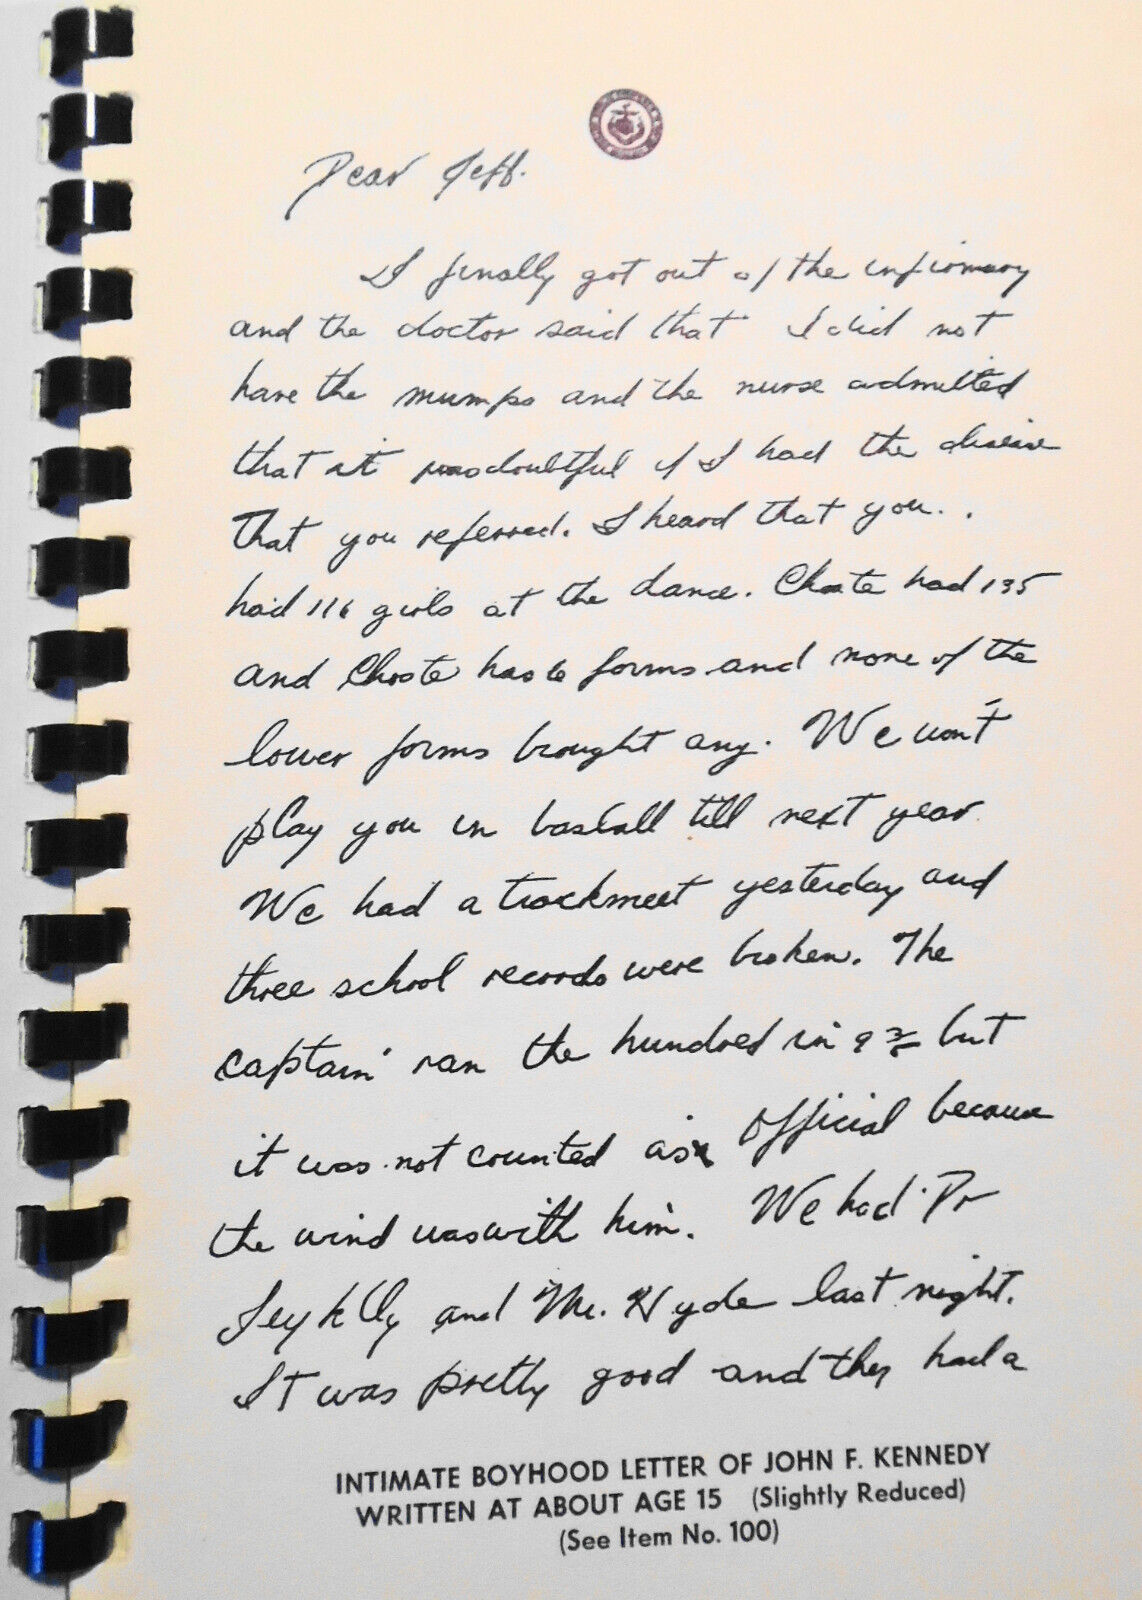 Dear Jeff.
I finally got out of the infirmary
and the doctor said that I did not
have the mumps and the nurse admitted
that it was doubtful if I had the disease
that you referred. I heard that you..
had 116 girls at the dance. Choate had 135
and Choate has 6 forms and none of the
lower forms brought any. We won't
play you in baseball till next year.
We had a trackmeet yesterday and
three school records were broken. The
captain ran the hundred in 9 3/5 but
it was not counted as official because
the wind was with him. We had Dr
Jeyklly and Mr. Hyde last night.
It was pretty good and they had a
INTIMATE BOYHOOD LETTER OF JOHN F. KENNEDY
WRITTEN AT ABOUT AGE 15 (Slightly Reduced)
(See Item No. 100)